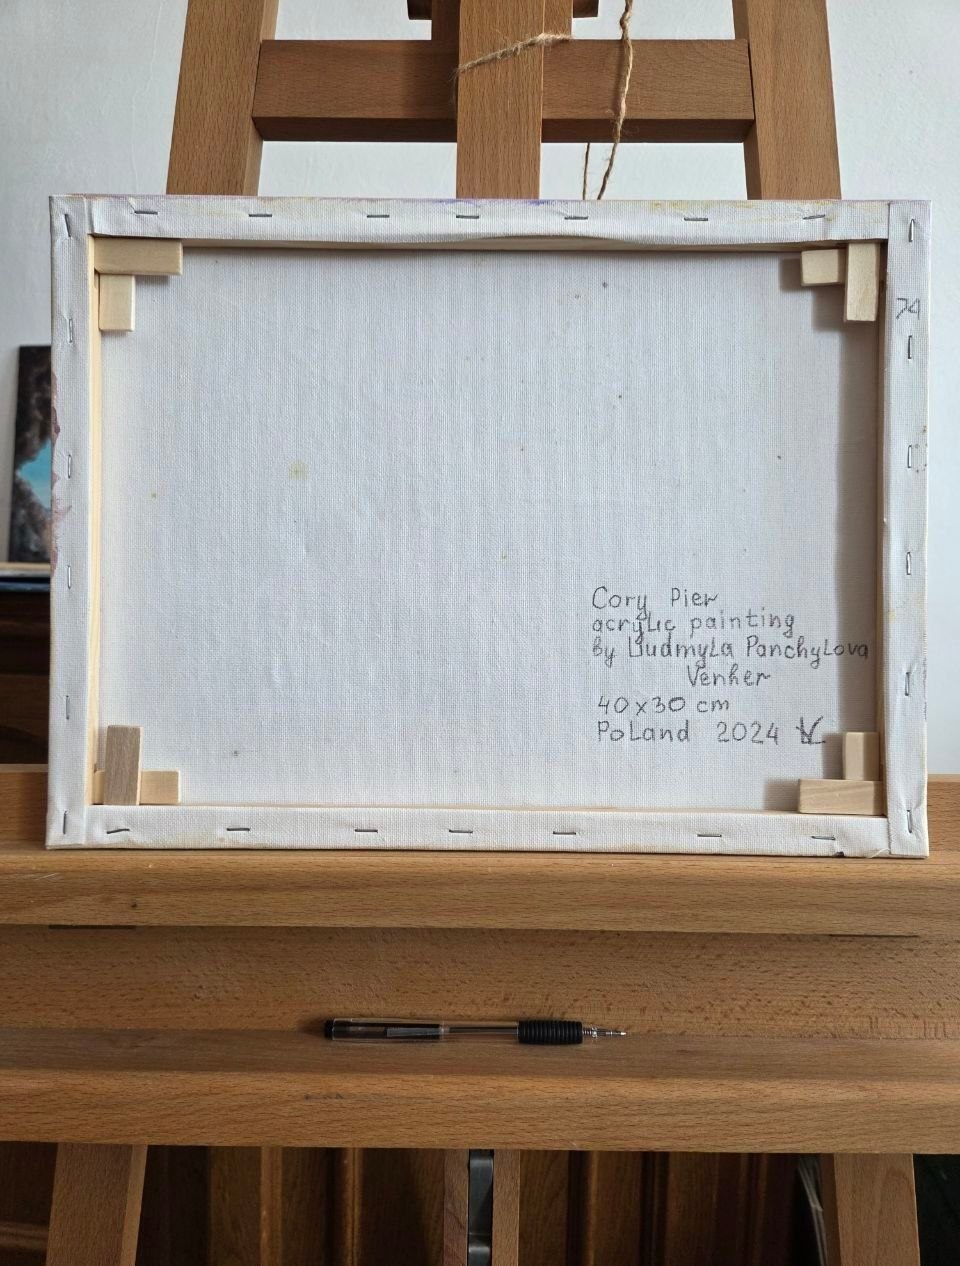 74
Cory Pier
acrylic painting
by Liudmyla Panchylova
Venher
40x30 cm
Poland 2024